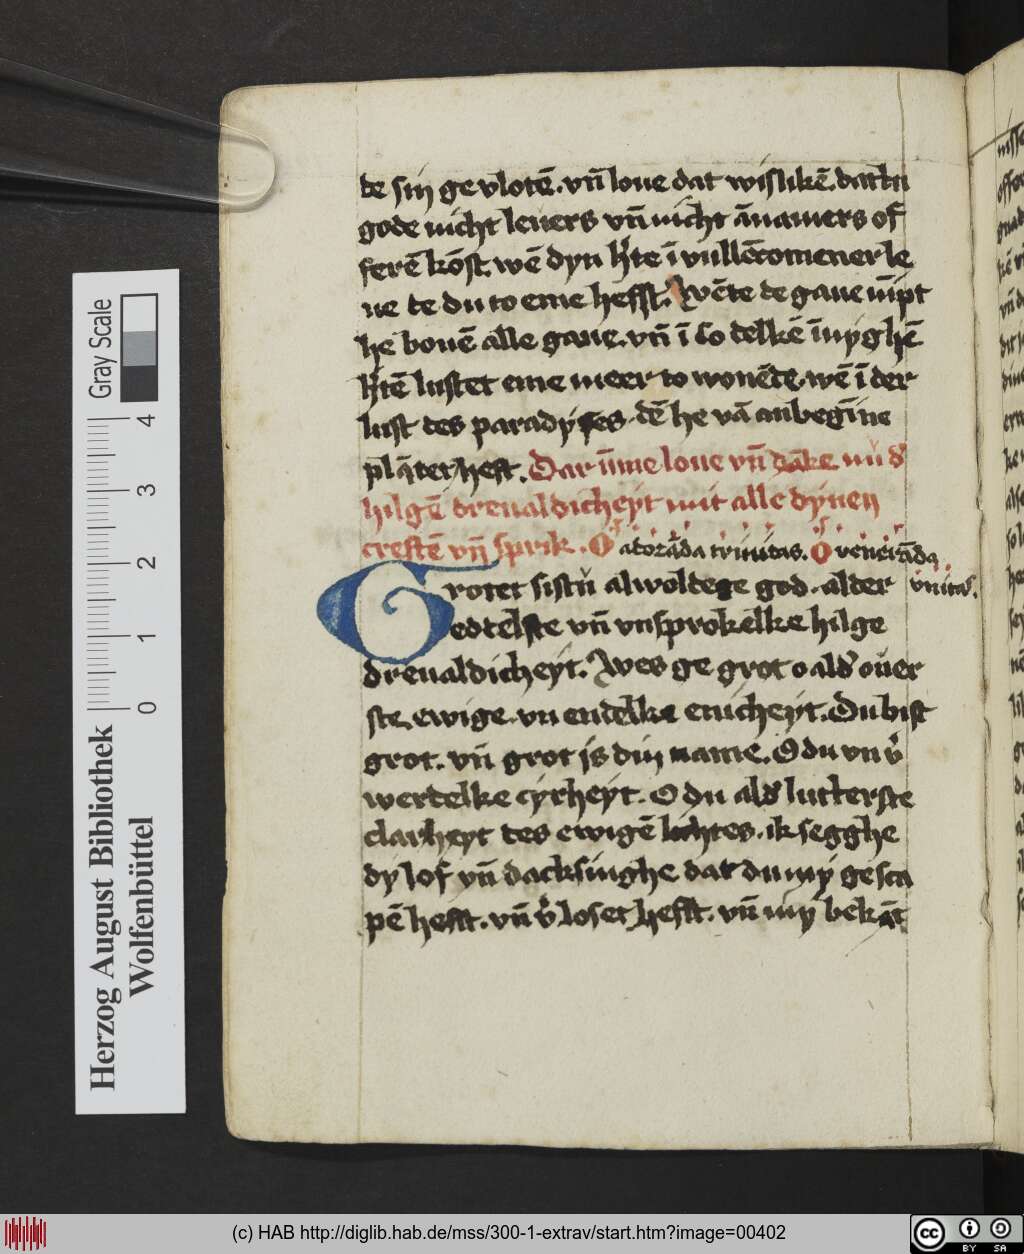 de sin gevloten̄. vn̄ loue dat wislikē. dattu
gode nicht leuers vn̄ nicht ānamers of
ferē kōst. wē dyn h'te ī vullēcomener le
ue de du to eme hefft. Wēte de gaue nīpt
he bouē alle gaue. vn̄ ī so delkē īnyghē
h'tē lustet eme meer to wonēde. wē ī der
lust des paradyses. dē he vā anbegīne
plāter heft. Dar ūme loue vn̄ dāke nu d'
hilgē dreualdicheyt mit alle dynen
crestē vn̄ sprik. O adorāda trinitas. O venerāda
vnitas.
Grotet sistu alwoldege god. alder
edtelste vn̄ vnsprokelke hilge
dreualdicheyt. Wes ge grot o ald' ouer
ste. ewige. vn endelke enicheyt. Du bist
grot. vn̄ grot is din name. O du vn v'
wertelke cyrheyt. O du ald' lutterste
clarheyt des ewigē lichtes. ik segghe
dy lof vn̄ dacksinghe dat du my gesca
pē hefft. vn̄ v'loset hefft. vn̄ my bekāt
Herzog August Bibliothek
Wolfenbüttel
0 1 2 3 4
Gray Scale
(c) HAB http://diglib.hab.de/mss/300-1-extrav/start.htm?image=00402
cc BY SA